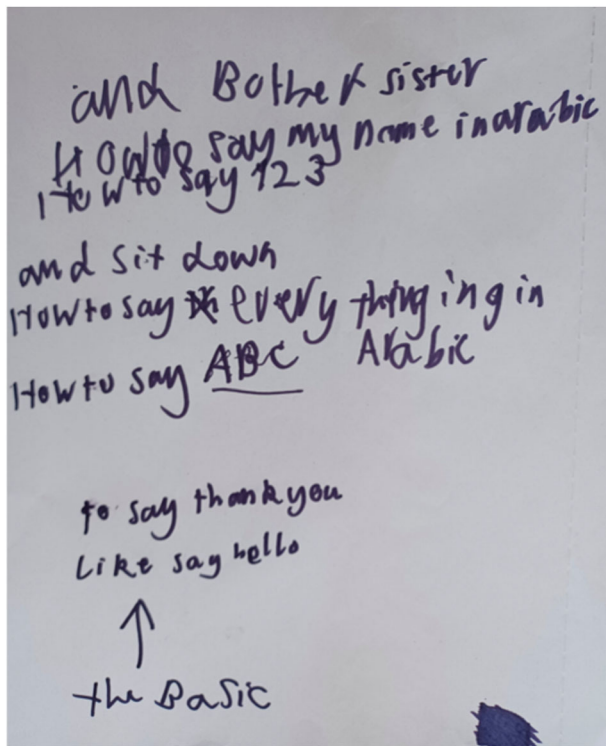 and Bother sister
How to say my name in arabic
How to say 123
and sit down
How to say every thinging in
Arabic
How to say ABC
to say thank you
Like say hello
the Basic